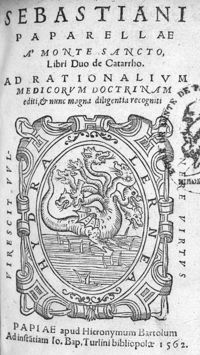 SEBASTIANI
PAPARELLAE
A' MONTE SANCTO,
Libri Duo de Catarrho.
AD RATIONALIVM
MEDICORVM DOCTRINAM
editi, & nunc magna diligentia recogniti
VIRESCIT VVL-
NERE VIRTVS
HYDRA
LERNEA
PAPIAE apud Hieronymum Bartolum
Ad instātiam Io. Bap. Turlini bibliopolæ 1562.